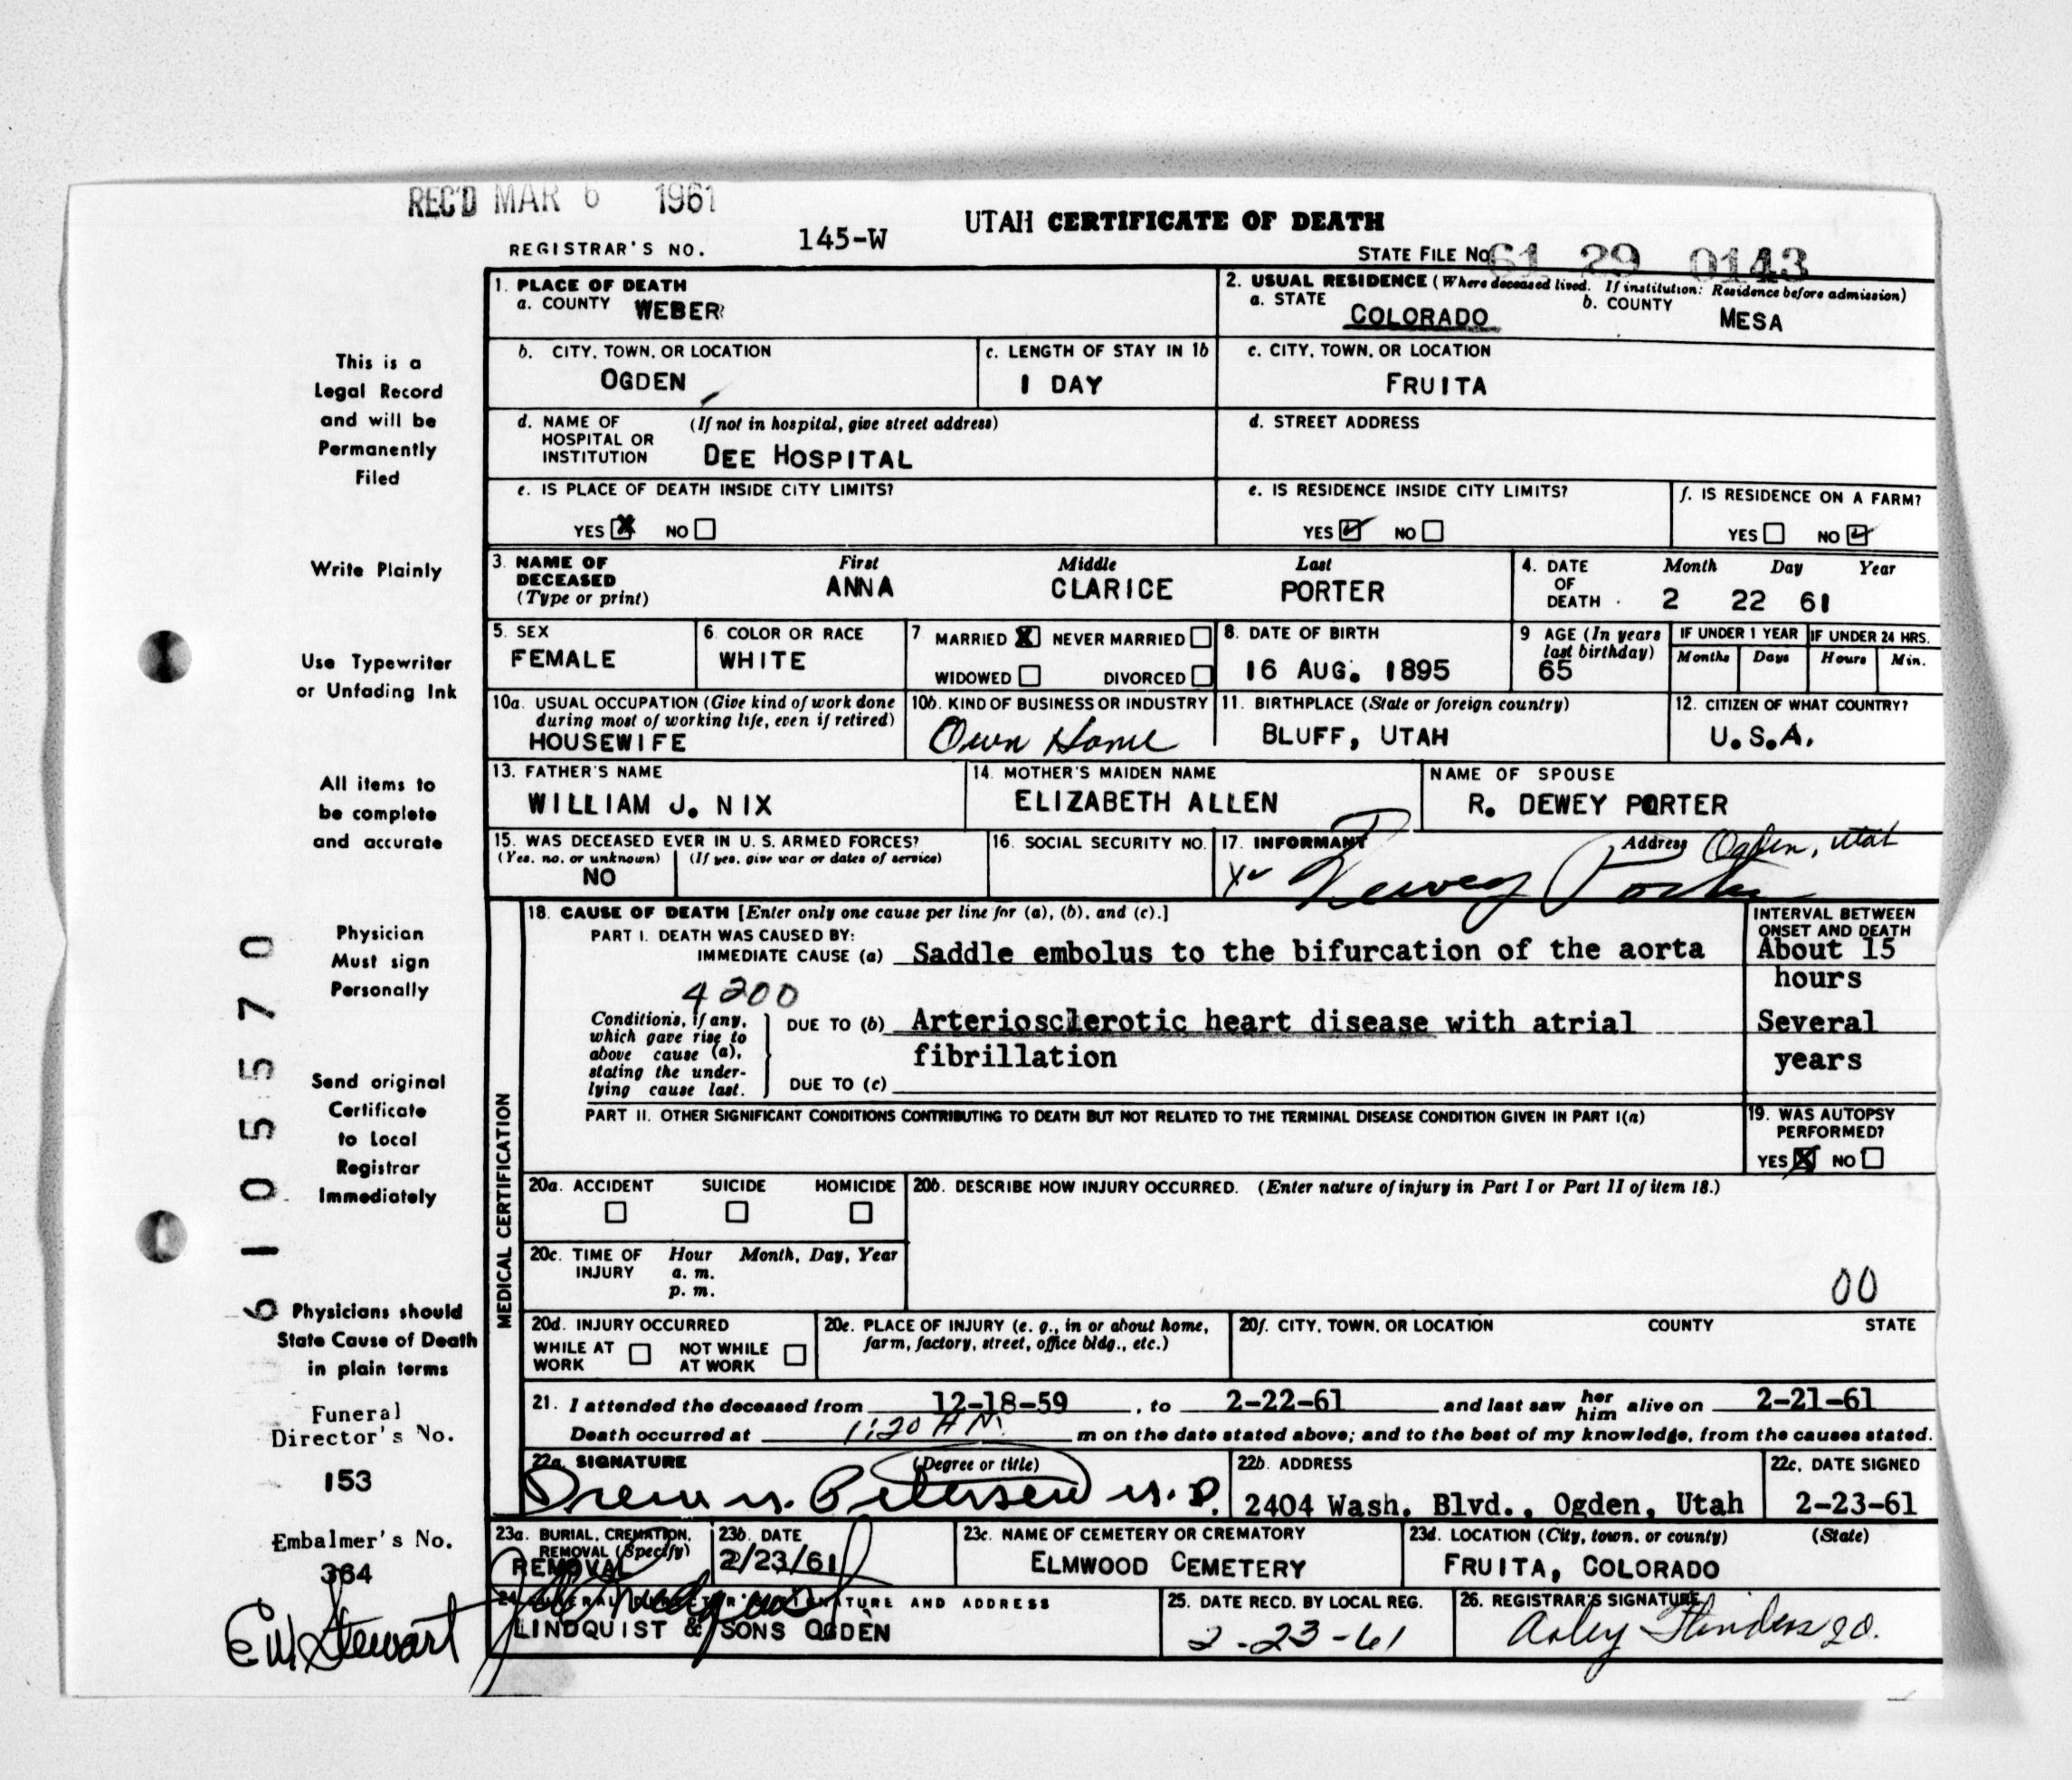 REC'D MAR 6 1961
UTAH CERTIFICATE OF DEATH
REGISTRAR'S NO. 145-W
STATE FILE NO. 61 29 0143
1. PLACE OF DEATH
a. COUNTY WEBER
2. USUAL RESIDENCE (Where deceased lived. If institution: Residence before admission)
a. STATE COLORADO
b. COUNTY MESA
b. CITY, TOWN, OR LOCATION
OGDEN
c. LENGTH OF STAY IN 1b
1 DAY
c. CITY, TOWN, OR LOCATION
FRUITA
d. NAME OF HOSPITAL OR INSTITUTION (If not in hospital, give street address)
DEE HOSPITAL
d. STREET ADDRESS
e. IS PLACE OF DEATH INSIDE CITY LIMITS?
YES X NO
e. IS RESIDENCE INSIDE CITY LIMITS?
YES ✓ NO
f. IS RESIDENCE ON A FARM?
YES NO ✓
3. NAME OF DECEASED (Type or print)
First Middle Last
ANNA CLARICE PORTER
4. DATE OF DEATH
Month Day Year
2 22 61
5. SEX
FEMALE
6. COLOR OR RACE
WHITE
7 MARRIED X NEVER MARRIED
WIDOWED DIVORCED
8. DATE OF BIRTH
16 AUG. 1895
9 AGE (In years last birthday)
65
IF UNDER 1 YEAR
Months Days
IF UNDER 24 HRS.
Hours Min.
10a. USUAL OCCUPATION (Give kind of work done during most of working life, even if retired)
HOUSEWIFE
10b. KIND OF BUSINESS OR INDUSTRY
Own Home
11. BIRTHPLACE (State or foreign country)
BLUFF, UTAH
12. CITIZEN OF WHAT COUNTRY?
U.S.A.
13. FATHER'S NAME
WILLIAM J. NIX
14. MOTHER'S MAIDEN NAME
ELIZABETH ALLEN
NAME OF SPOUSE
R. DEWEY PORTER
15. WAS DECEASED EVER IN U. S. ARMED FORCES?
(Yes, no, or unknown) (If yes, give war or dates of service)
NO
16. SOCIAL SECURITY NO.
17. INFORMANT Address Ogden, Utah
Dewey Porter
MEDICAL CERTIFICATION
18. CAUSE OF DEATH [Enter only one cause per line for (a), (b), and (c).]
PART I. DEATH WAS CAUSED BY:
IMMEDIATE CAUSE (a) Saddle embolus to the bifurcation of the aorta
INTERVAL BETWEEN ONSET AND DEATH
About 15
hours
4200
Conditions, if any, which gave rise to above cause (a), stating the underlying cause last.
DUE TO (b) Arteriosclerotic heart disease with atrial
fibrillation
Several
years
DUE TO (c)
PART II. OTHER SIGNIFICANT CONDITIONS CONTRIBUTING TO DEATH BUT NOT RELATED TO THE TERMINAL DISEASE CONDITION GIVEN IN PART I(a)
19. WAS AUTOPSY PERFORMED?
YES X NO
20a. ACCIDENT SUICIDE HOMICIDE
20b. DESCRIBE HOW INJURY OCCURRED. (Enter nature of injury in Part I or Part II of item 18.)
20c. TIME OF INJURY Hour Month, Day, Year
a. m.
p. m.
00
20d. INJURY OCCURRED
WHILE AT WORK NOT WHILE AT WORK
20e. PLACE OF INJURY (e. g., in or about home, farm, factory, street, office bldg., etc.)
20f. CITY, TOWN, OR LOCATION COUNTY STATE
21. I attended the deceased from 12-18-59, to 2-22-61 and last saw her him alive on 2-21-61
Death occurred at 1:20 A M. m on the date stated above; and to the best of my knowledge, from the causes stated.
22a. SIGNATURE (Degree or title)
Drew M. Petersen M.D.
22b. ADDRESS
2404 Wash. Blvd., Ogden, Utah
22c. DATE SIGNED
2-23-61
23a. BURIAL, CREMATION, REMOVAL (Specify)
REMOVAL
23b. DATE
2/23/61
23c. NAME OF CEMETERY OR CREMATORY
ELMWOOD CEMETERY
23d. LOCATION (City, town, or county) (State)
FRUITA, COLORADO
24. FUNERAL DIRECTOR'S SIGNATURE AND ADDRESS
LINDQUIST & SONS OGDEN
25. DATE RECD. BY LOCAL REG.
2-23-61
26. REGISTRAR'S SIGNATURE
This is a
Legal Record
and will be
Permanently
Filed
Write Plainly
Use Typewriter
or Unfading Ink
All items to
be complete
and accurate
Physician
Must sign
Personally
Send original
Certificate
to Local
Registrar
Immediately
Physicians should
State Cause of Death
in plain terms
Funeral
Director's No.
153
Embalmer's No.
364
E W Stewart
6105570